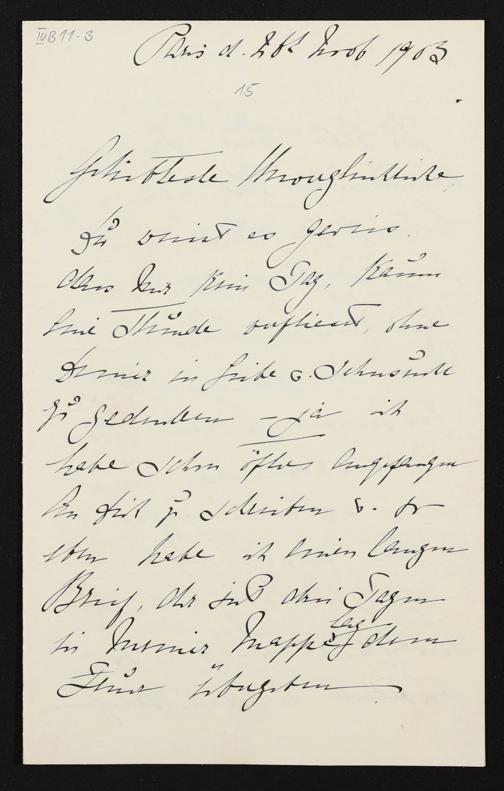 IV B 11-3
Paris d. 28t Novb 1903
15
Geliebteste Unvergleichliche,
Du weisst es gewiss
dass mir kein Tag, kaum
eine Stunde verfliesst, ohne
Deiner in Liebe u. Sehnsucht
zu gedenken – ja ich
habe schon öfter angefangen
An Dich zu schreiben u. so
eben habe ich einen langen
Brief, der seit drei Tagen
in meiner Mappe lag dem
Feuer übergeben